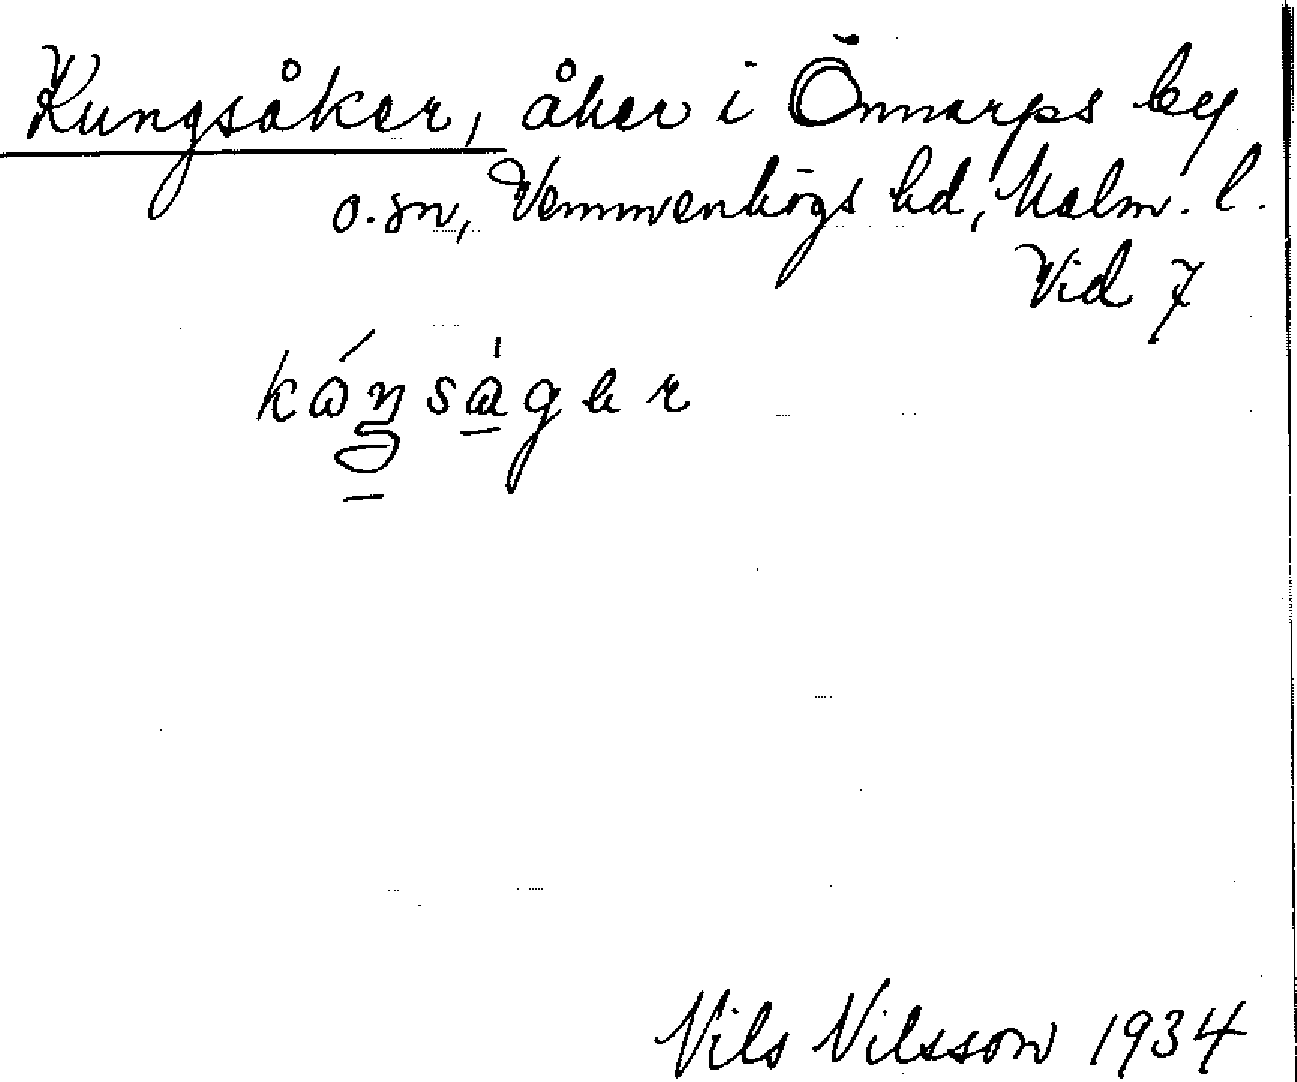 Kungsåker, åker i Önnarps by
o. sn, Vemmenhögs hd, Malm. l.
Vid 7
Nils Nilsson 1934